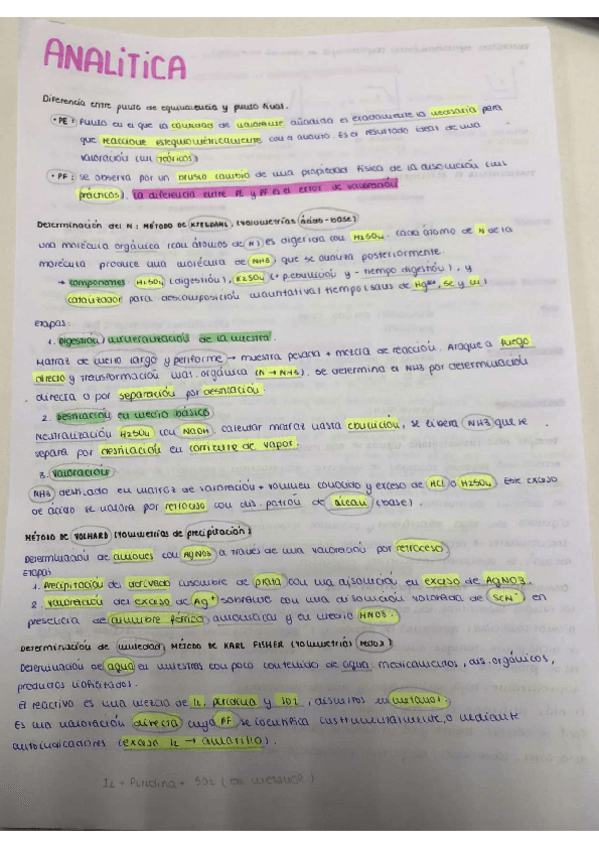 ANALÍTICA
Diferencia entre punto de equivalencia y punto final.
· PE: Punto en el que la cantidad de valorante añadida es exactamente la necesaria para
que reaccione estequiométricamente con el analito. Es el resultado ideal de una
valoración (un teórico)
· PF: se observa por un brusco cambio de una propiedad física de la disolución (un
práctico). La diferencia entre PE y PF es el error de valoración
Determinación del N: MÉTODO DE KJELDAHL, (volumetrías ácido-base)
una molécula orgánica (con átomos de N) es digerida con H2SO4. Cada átomo de N de la
molécula produce una molécula de NH3, que se valora posteriormente.
→ componentes: H2SO4 (digestión), K2SO4 (+ p.ebullición y - tiempo digestión), y
catalizador para descomposición cuantitativa/tiempo (sales de Hg, Se y
Etapas:
1. Digestión/mineralización de la muestra.
Matraz de cuello largo y periforme → muestra pesada + mezcla de reacción. Ataque a fuego
directo y transformación mat. orgánica (N → NH3). Se determina el NH3 por determinación
directa o por separación por destilación.
2. Destilación en medio básico
Neutralización H2SO4 con NaOH. calentar matraz hasta ebullición, se libera NH3 que se
separa por destilación en corriente de vapor.
3. Valoración
NH3 destilado en matraz de valoración + volumen conocido y exceso de HCl o H2SO4. Este exceso
de ácido se valora por retroceso con dis. patrón de álcali (base).
MÉTODO DE VOLHARD (volumetrías de precipitación)
Determinación de aniones con AgNO3 a través de una valoración por retroceso
Etapas
1. Precipitación del derivado insoluble de plata con una disolución en exceso de AgNO3.
2. Valoración del exceso de Ag+ sobrante con una disolución valorada de SCN- en
presencia de alumbre férrico amoniacal y en medio HNO3.
Determinación de humedad, MÉTODO DE KARL FISHER (volumetrías redox)
Determinación de agua en muestras con poco contenido de agua: medicamentos, dis. orgánicos,
productos liofilizados.
El reactivo es una mezcla de I2, piridina y SO2, disueltos en metanol.
Es una valoración directa cuyo PF se identifica instrumentalmente, o mediante
autoindicadores (exceso I2 → amarillo).
I2 + Piridina + SO2 (en metanol)